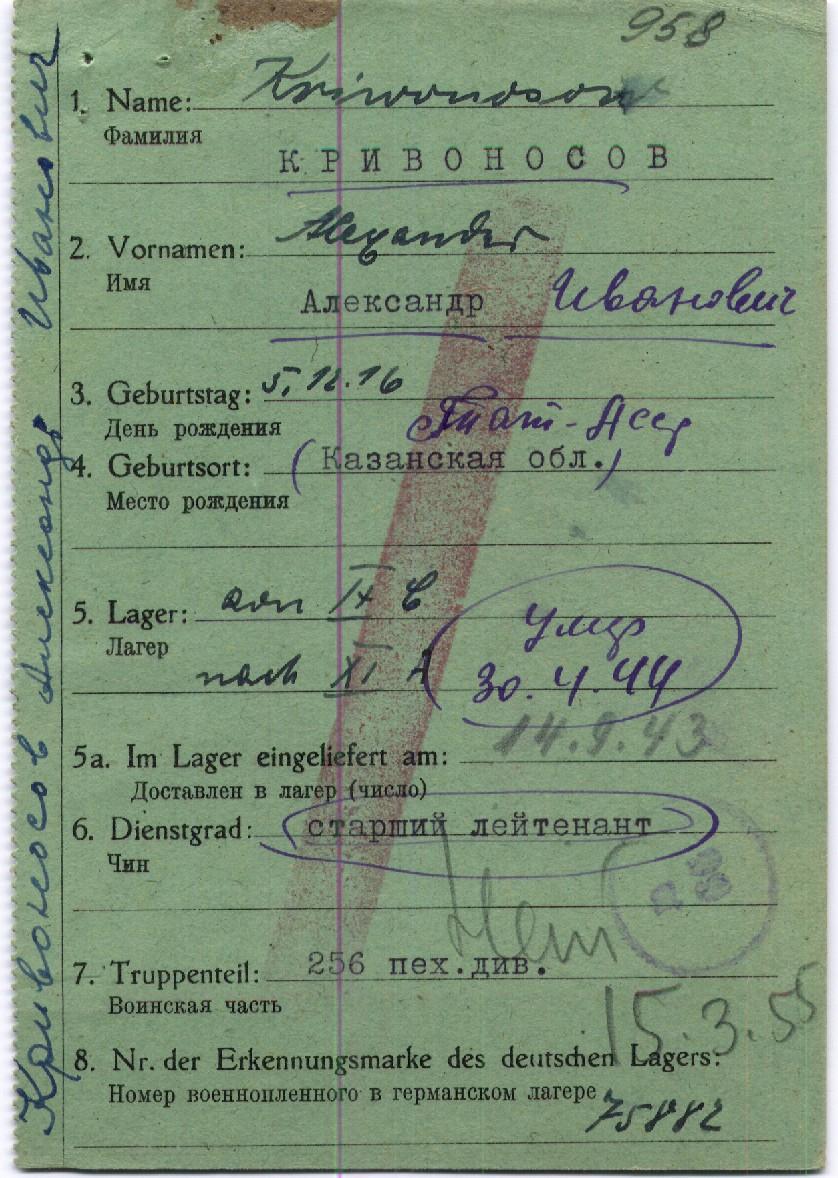 958
1. Name: Kriwonosow
Фамилия
КРИВОНОСОВ
2. Vornamen: Alexander
Имя
Александр Иванович
3. Geburtstag: 5.12.16
День рождения
Тат-Асср
4. Geburtsort: (Казанская обл.)
Место рождения
5. Lager: von IX C
Лагер
nach XI A
Умер
30.4.44
5a. Im Lager eingeliefert am: 14.9.43
Доставлен в лагер (число)
6. Dienstgrad: старший лейтенант
Чин
Нет
7. Truppenteil: 256 пех.див.
Воинская часть
15.3.55
8. Nr. der Erkennungsmarke des deutschen Lagers:
Номер военнопленного в германском лагере
75882
Кривоносов Александр Иванович